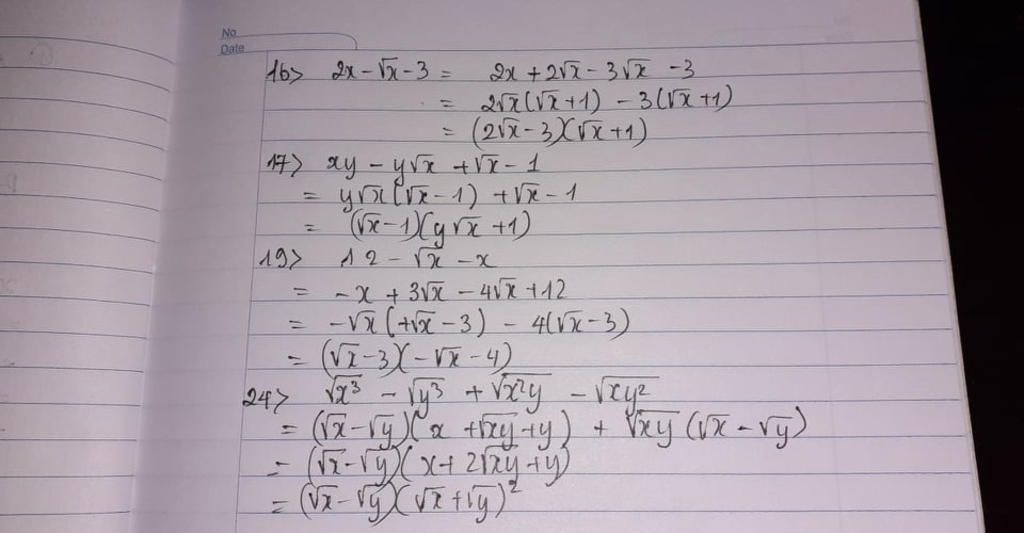 No
Date
16> 2x - √x - 3 = 2x + 2√x - 3√x - 3
= 2√x(√x + 1) - 3(√x + 1)
= (2√x - 3)(√x + 1)
17> xy - y√x + √x - 1
= y√x(√x - 1) + √x - 1
= (√x - 1)(y√x + 1)
19> 12 - √x - x
= -x + 3√x - 4√x + 12
= -√x(+√x - 3) - 4(√x - 3)
= (√x - 3)(-√x - 4)
24> √x³ - √y³ + √x²y - √xy²
= (√x - √y)(x + √xy + y) + √xy(√x - √y)
= (√x - √y)(x + 2√xy + y)
= (√x - √y)(√x + √y)²